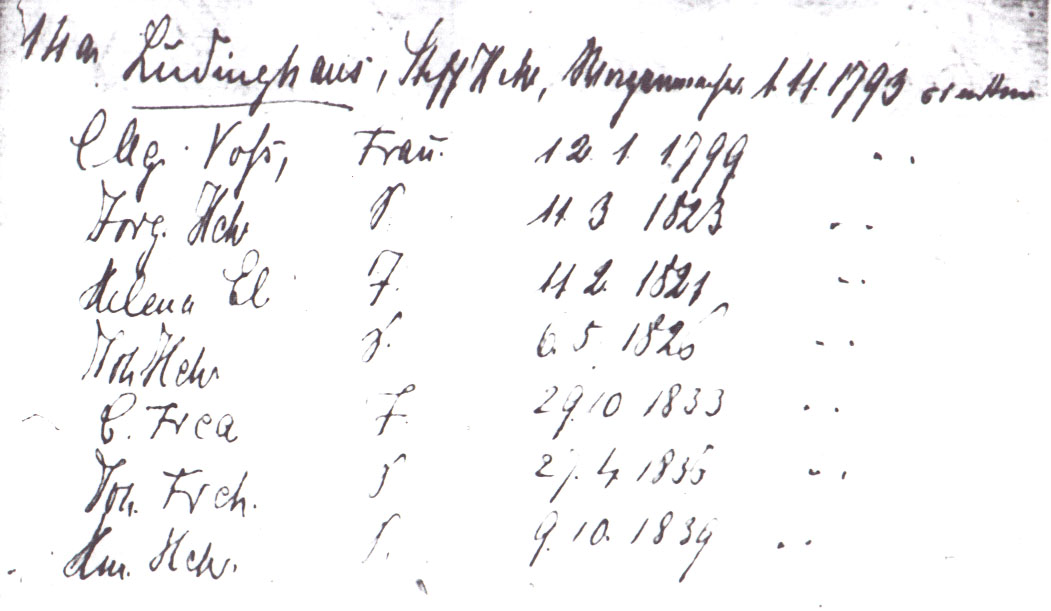 14a Lüdinghaus, Steff Hch, 1.11.1793
C Ag. Voß, Frau. 12. 1. 1799 "
Jorg. Hch S. 11. 3 1823 "
Helena El T. 11 2. 1821 "
Joh Hch S. 6. 5. 1826 "
C. Frea T. 29.10 1833 "
Joh. Frch. S 27. 4. 1836 "
Hm. Hch. S. 9. 10. 1839 "